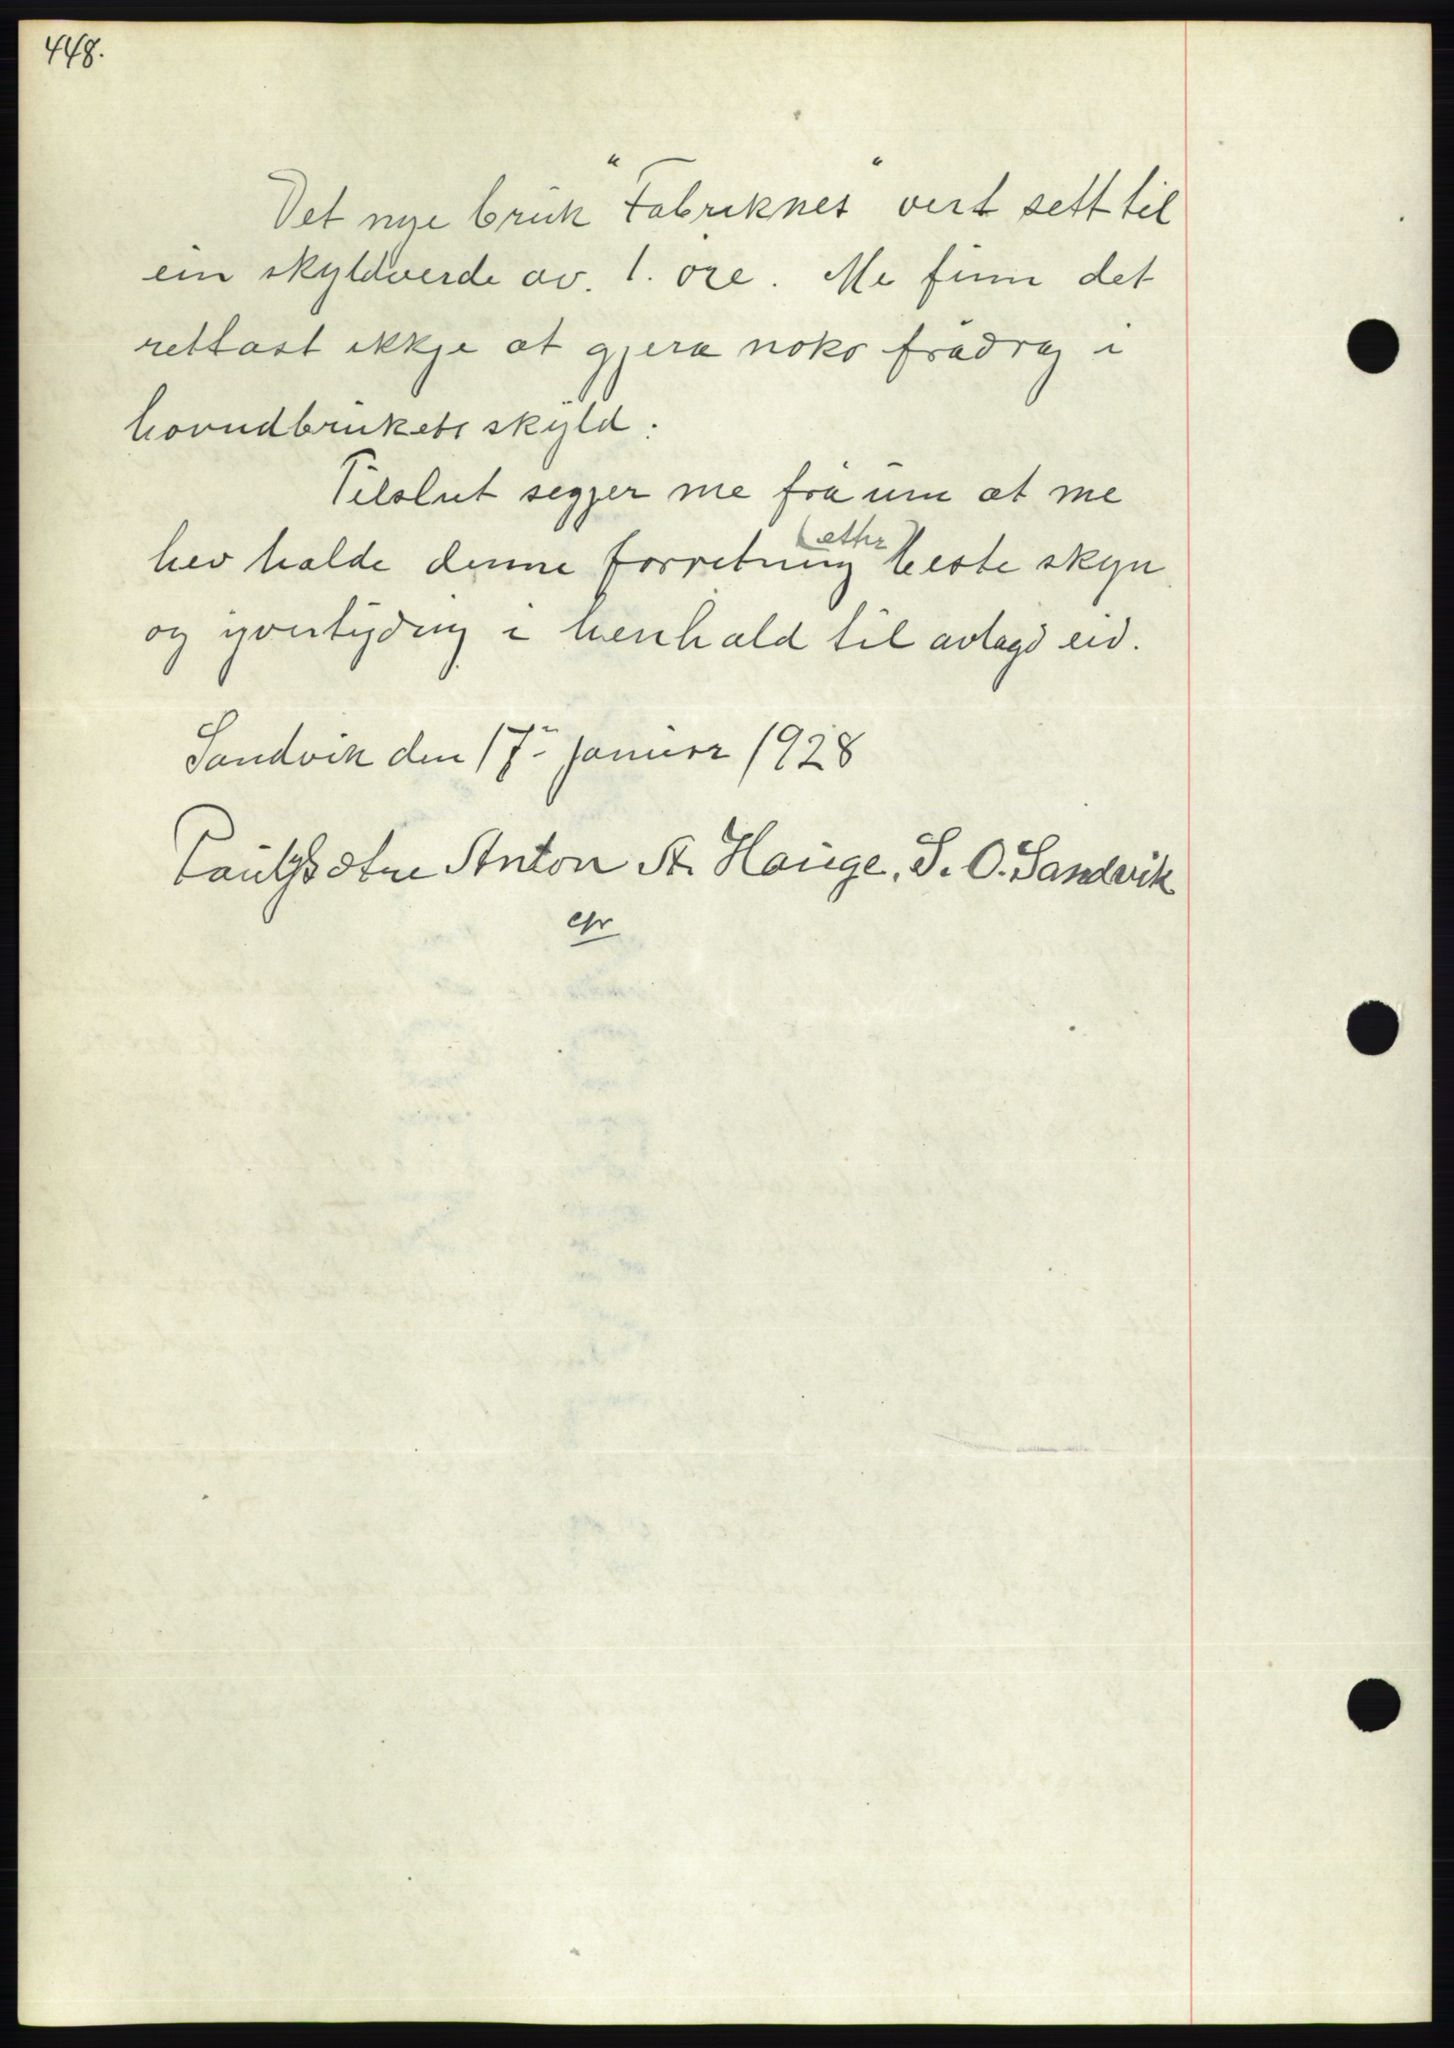 448.
Det nye bruk "Fabriknes" vert sett til
ein skyldverde av. 1. öre. Me finn det
rettast ikkje at gjera noko frådrag i
hovudbrukets skyld.
Tilslut segjer me frå um at me
hev halde denne forretning etter beste skyn
og yvertyding i henhald til avlagd eid.
Sandvik den 17- januar 1928
Anton St. Hauge. S. O. Sandvik